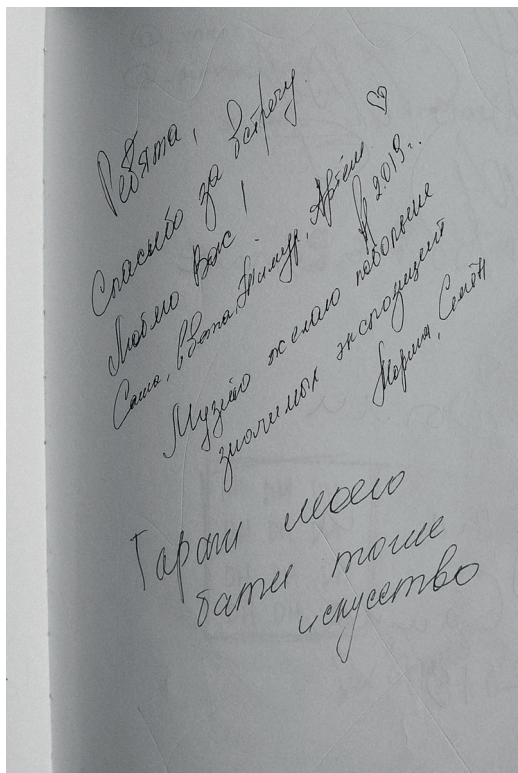 Ребята,
Спасибо за встречу.
Люблю Вас!
Саша, Света, Тимур, Артём ♡
2019 г.
Музею желаю побольше
значимых экспозиций
Мария, Семён
Гараж моего
бати тоже
искусство